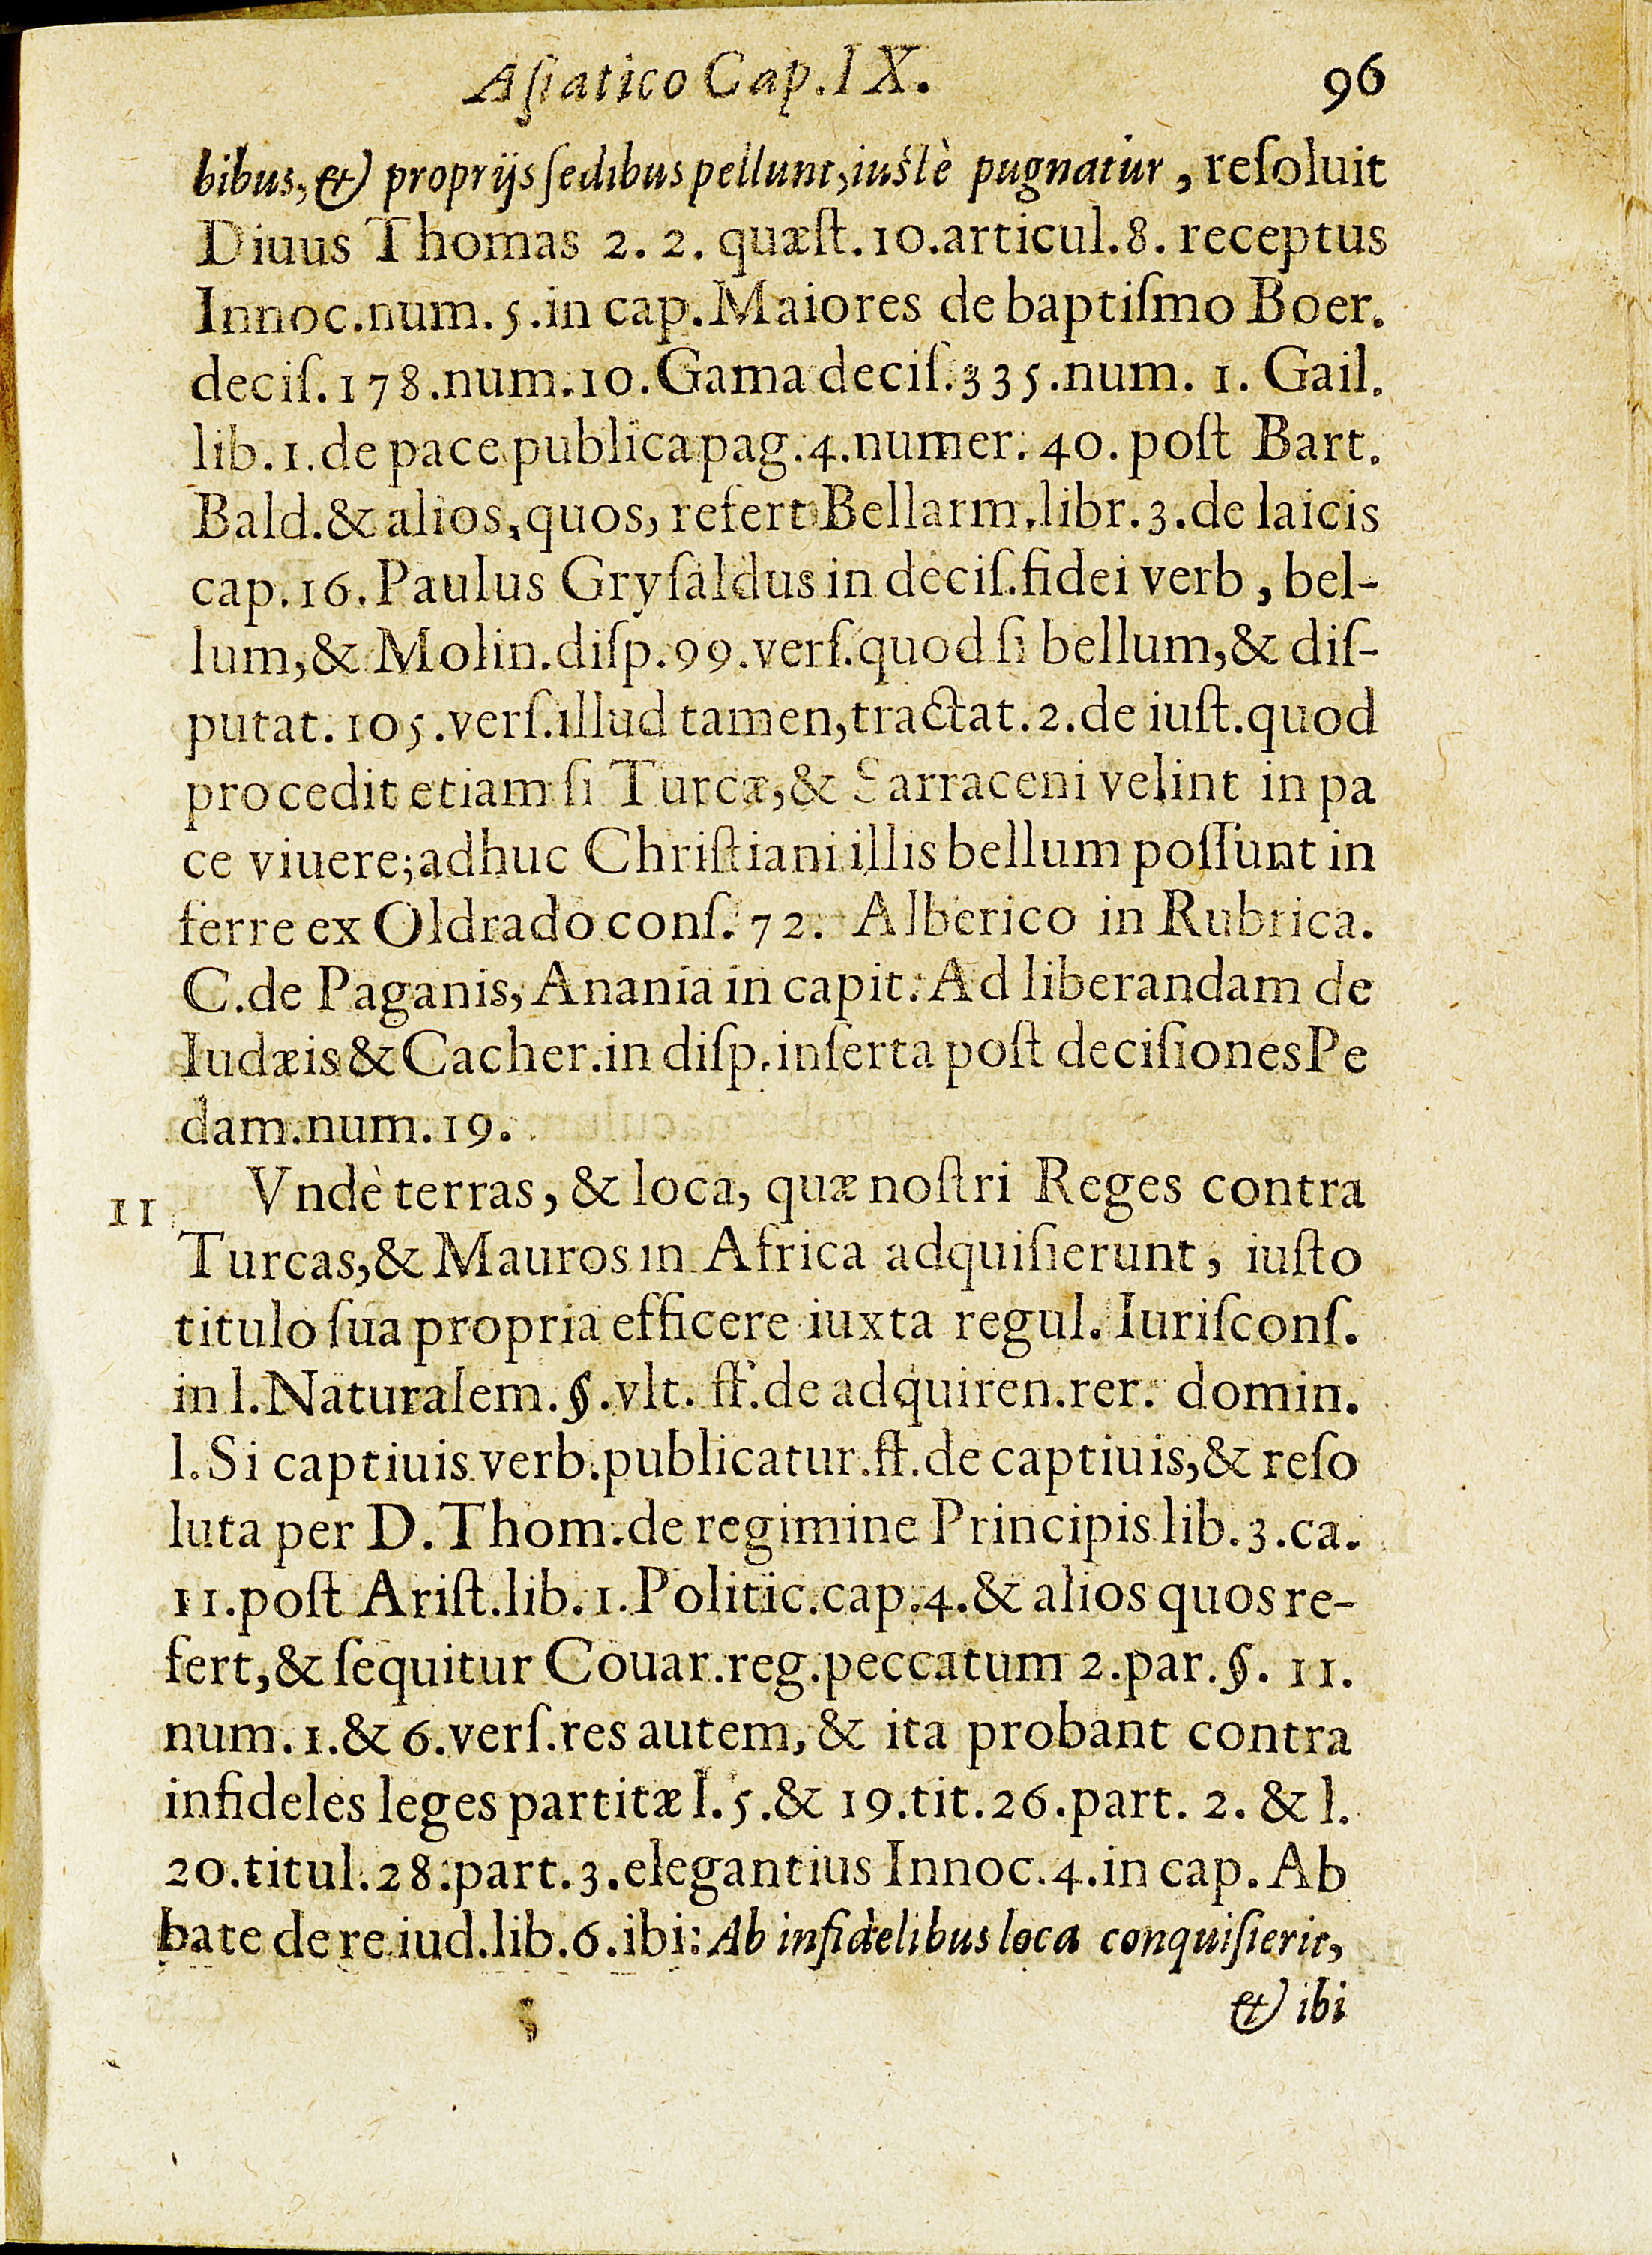 Aſiatico Cap. IX. 96
bibus, & proprijs ſedibus pellunt, iuſtè pugnatur, reſoluit
Diuus Thomas 2. 2. quæſt. 10. articul. 8. receptus
Innoc. num. 5. in cap. Maiores de baptiſmo Boer.
deciſ. 178. num. 10. Gama deciſ. 335. num. 1. Gail.
lib. 1. de pace publica pag. 4. numer. 40. poſt Bart.
Bald. & alios, quos, refert Bellarm. libr. 3. de laicis
cap. 16. Paulus Gryſaldus in deciſ. fidei verb, bel-
lum, & Molin. diſp. 99. verſ. quod ſi bellum, & diſ-
putat. 105. verſ. illud tamen, tractat. 2. de iuſt. quod
procedit etiam ſi Turcæ, & Sarraceni velint in pa
ce viuere; adhuc Chriſtiani illis bellum poſſunt in
ferre ex Oldrado conſ. 72. Alberico in Rubrica.
C. de Paganis, Anania in capit. Ad liberandam de
Iudæis & Cacher. in diſp. inſerta poſt deciſiones Pe
dam. num. 19.
11 Vndè terras, & loca, quæ noſtri Reges contra
Turcas, & Mauros in Africa adquiſierunt, iuſto
titulo ſua propria efficere iuxta regul. Iuriſconſ.
in l. Naturalem. §. vlt. ff. de adquiren. rer. domin.
l. Si captiuis verb. publicatur. ff. de captiuis, & reſo
luta per D. Thom. de regimine Principis lib. 3. ca.
11. poſt Ariſt. lib. 1. Politic. cap. 4. & alios quos re-
fert, & ſequitur Couar. reg. peccatum 2. par. §. 11.
num. 1. & 6. verſ. res autem, & ita probant contra
infideles leges partitæ l. 5. & 19. tit. 26. part. 2. & l.
20. titul. 28. part. 3. elegantius Innoc. 4. in cap. Ab
bate de re iud. lib. 6. ibi: Ab infidelibus loca conquiſierit,
& ibi